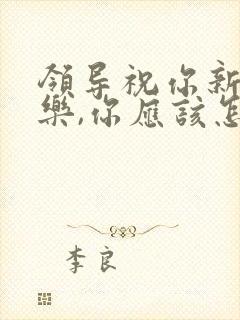 領导祝你新
樂,你应該怎
李良